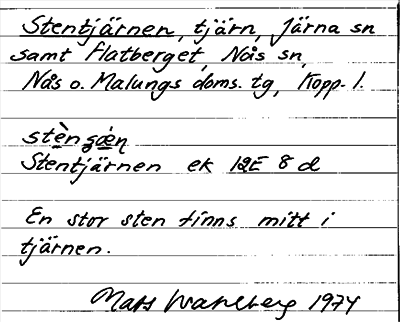 Stentjärnen, tjärn, Järna sn
samt Flatberget, Nås sn,
Nås o. Malungs doms. tg, Kopp. l.
Stentjärnen ek 12E 8 d
En stor sten finns mitt i
tjärnen.
Mats Wahlberg 1974